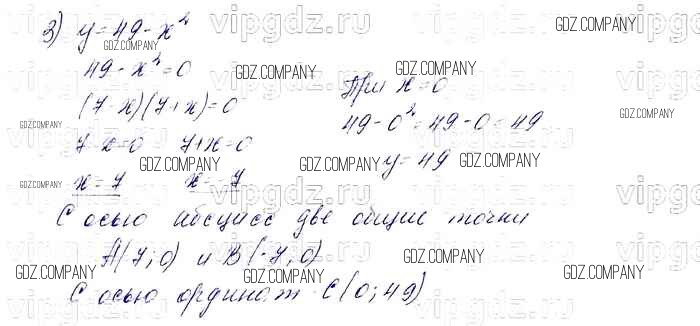 3) y = 49 - x²
49 - x² = 0
(7 - x)(7 + x) = 0
7 - x = 0 7 + x = 0
x = 7 x = -7
При x = 0
49 - 0² = 49 - 0 = 49
y = 49
С осью абсцисс две общие точки
A(7; 0) и B(-7; 0)
С осью ординат C(0; 49)
vipgdz.ru
GDZ.COMPANY